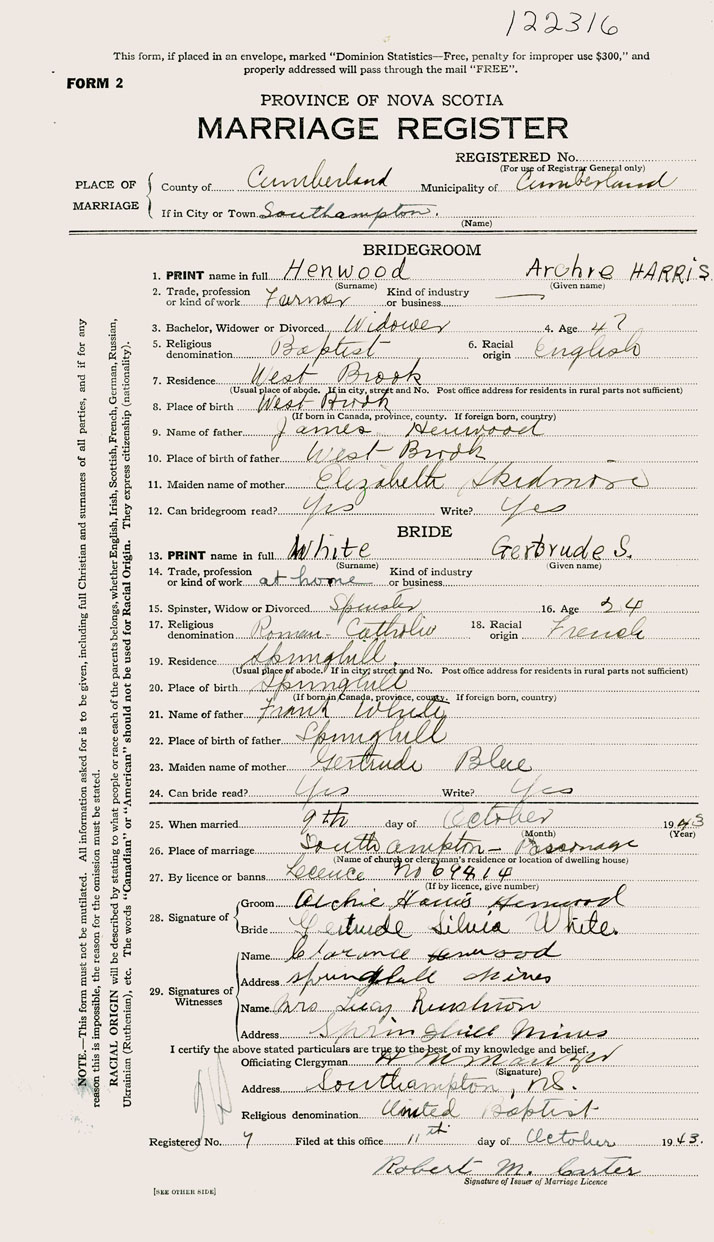 122316
This form, if placed in an envelope, marked "Dominion Statistics—Free, penalty for improper use $300," and
properly addressed will pass through the mail "FREE".
FORM 2
PROVINCE OF NOVA SCOTIA
MARRIAGE REGISTER
REGISTERED No.
(For use of Registrar General only)
PLACE OF MARRIAGE
County of Cumberland Municipality of Cumberland
If in City or Town Southampton.
(Name)
BRIDEGROOM
1. PRINT name in full Henwood Archie HARRIS
(Surname) (Given name)
2. Trade, profession or kind of work Farmer Kind of industry or business —
3. Bachelor, Widower or Divorced Widower 4. Age 47
5. Religious denomination Baptist 6. Racial origin English
7. Residence West Brook
(Usual place of abode. If in city, street and No. Post office address for residents in rural parts not sufficient)
8. Place of birth West Brook
(If born in Canada, province, county. If foreign born, country)
9. Name of father James Henwood
10. Place of birth of father West Brook
11. Maiden name of mother Elizabeth Skidmore
12. Can bridegroom read? Yes Write? Yes
BRIDE
13. PRINT name in full White Gertrude S.
(Surname) (Given name)
14. Trade, profession or kind of work at home Kind of industry or business
15. Spinster, Widow or Divorced Spinster 16. Age 24
17. Religious denomination Roman-Catholic 18. Racial origin French
19. Residence Springhill
(Usual place of abode. If in city, street and No. Post office address for residents in rural parts not sufficient)
20. Place of birth Springhill
(If born in Canada, province, county. If foreign born, country)
21. Name of father Frank White
22. Place of birth of father Springhill
23. Maiden name of mother Gertrude Blue
24. Can bride read? Yes Write? Yes
25. When married 9th day of October 1943
(Month) (Year)
26. Place of marriage Southampton - Parsonage
(Name of church or clergyman's residence or location of dwelling house)
27. By licence or banns Licence No 69814
(If by licence, give number)
28. Signature of
Groom Archie Harris Henwood
Bride Gertrude Silvia White.
29. Signatures of Witnesses
Name Clarance Henwood
Address Springhill Mines
Name Mrs Lucy Rushton
Address Springhill Mines
I certify the above stated particulars are true to the best of my knowledge and belief.
Officiating Clergyman
(Signature)
Address Southampton, N.S.
Religious denomination United Baptist
Registered No. 7 Filed at this office 11th day of October 1943.
Robert M. Carter
Signature of Issuer of Marriage Licence
[SEE OTHER SIDE]
NOTE.—This form must not be mutilated. All information asked for is to be given, including full Christian and surnames of all parties, and if for any
reason this is impossible, the reason for the omission must be stated.
RACIAL ORIGIN will be described by stating to what people or race each of the parents belongs, whether English, Irish, Scottish, French, German, Russian,
Ukrainian (Ruthenian), etc. The words "Canadian" or "American" should not be used for Racial Origin. They express citizenship (nationality).